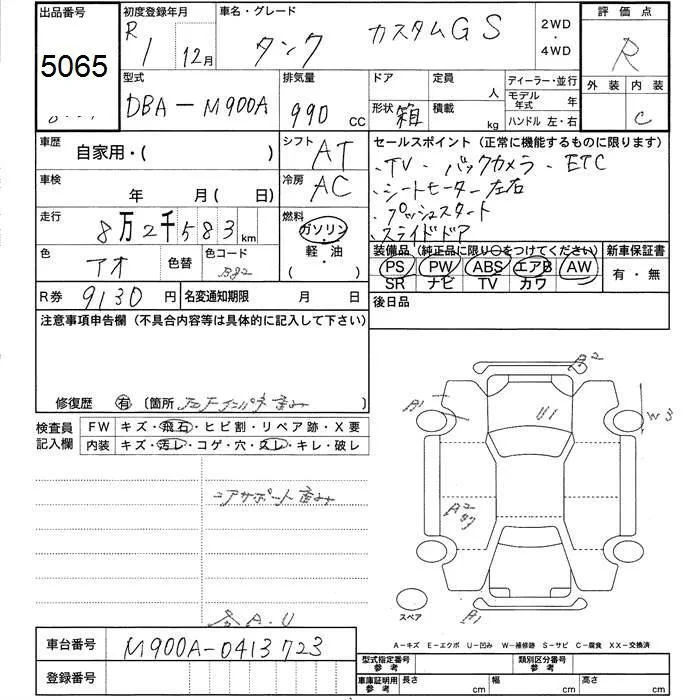 出品番号 初度登録年月 車名・グレード 2WD・4WD 評価点
5065 R 1 12月 タンク カスタムGS R
型式 排気量 ドア 定員 人 ディーラー・並行 外装 内装
DBA-M900A 990 cc 形状 箱 積載 kg モデル年式 年 C
ハンドル 左・右
車歴 自家用・( ) シフト AT セールスポイント(正常に機能するものに限ります)
、TV、バックカメラ、ETC
車検 年 月(日) 冷房 AC 、シートヒーター左右
走行 8万2千583km 燃料 ガソリン・軽・油( ) 、プッシュスタート
、スライドドア
色 アオ 色替 色コード B82 装備品(純正品に限り○をつけてください) 新車保証書
PS PW ABS エアB AW 有・無
SR ナビ TV カワ
R券 9130円 名変通知期限 月 日 後日品
注意事項申告欄(不具合内容等は具体的に記入して下さい)
修復歴 有 〔箇所 〕
検査員記入欄 FW キズ・飛石・ヒビ割・リペア跡・X要
内装 キズ・汚レ・コゲ・穴・スレ・キレ・破レ
コアサポート
A・U
A2
A1
U1
W3
A2
スペア
A1
車台番号 M900A-0413723
A-キズ E-エクボ U-凹み W-補修跡 S-サビ C-腐食 XX-交換済
登録番号 型式指定番号 参考 類別区分番号 参考
車庫証明用 参考 長さ cm 幅 cm 高さ cm